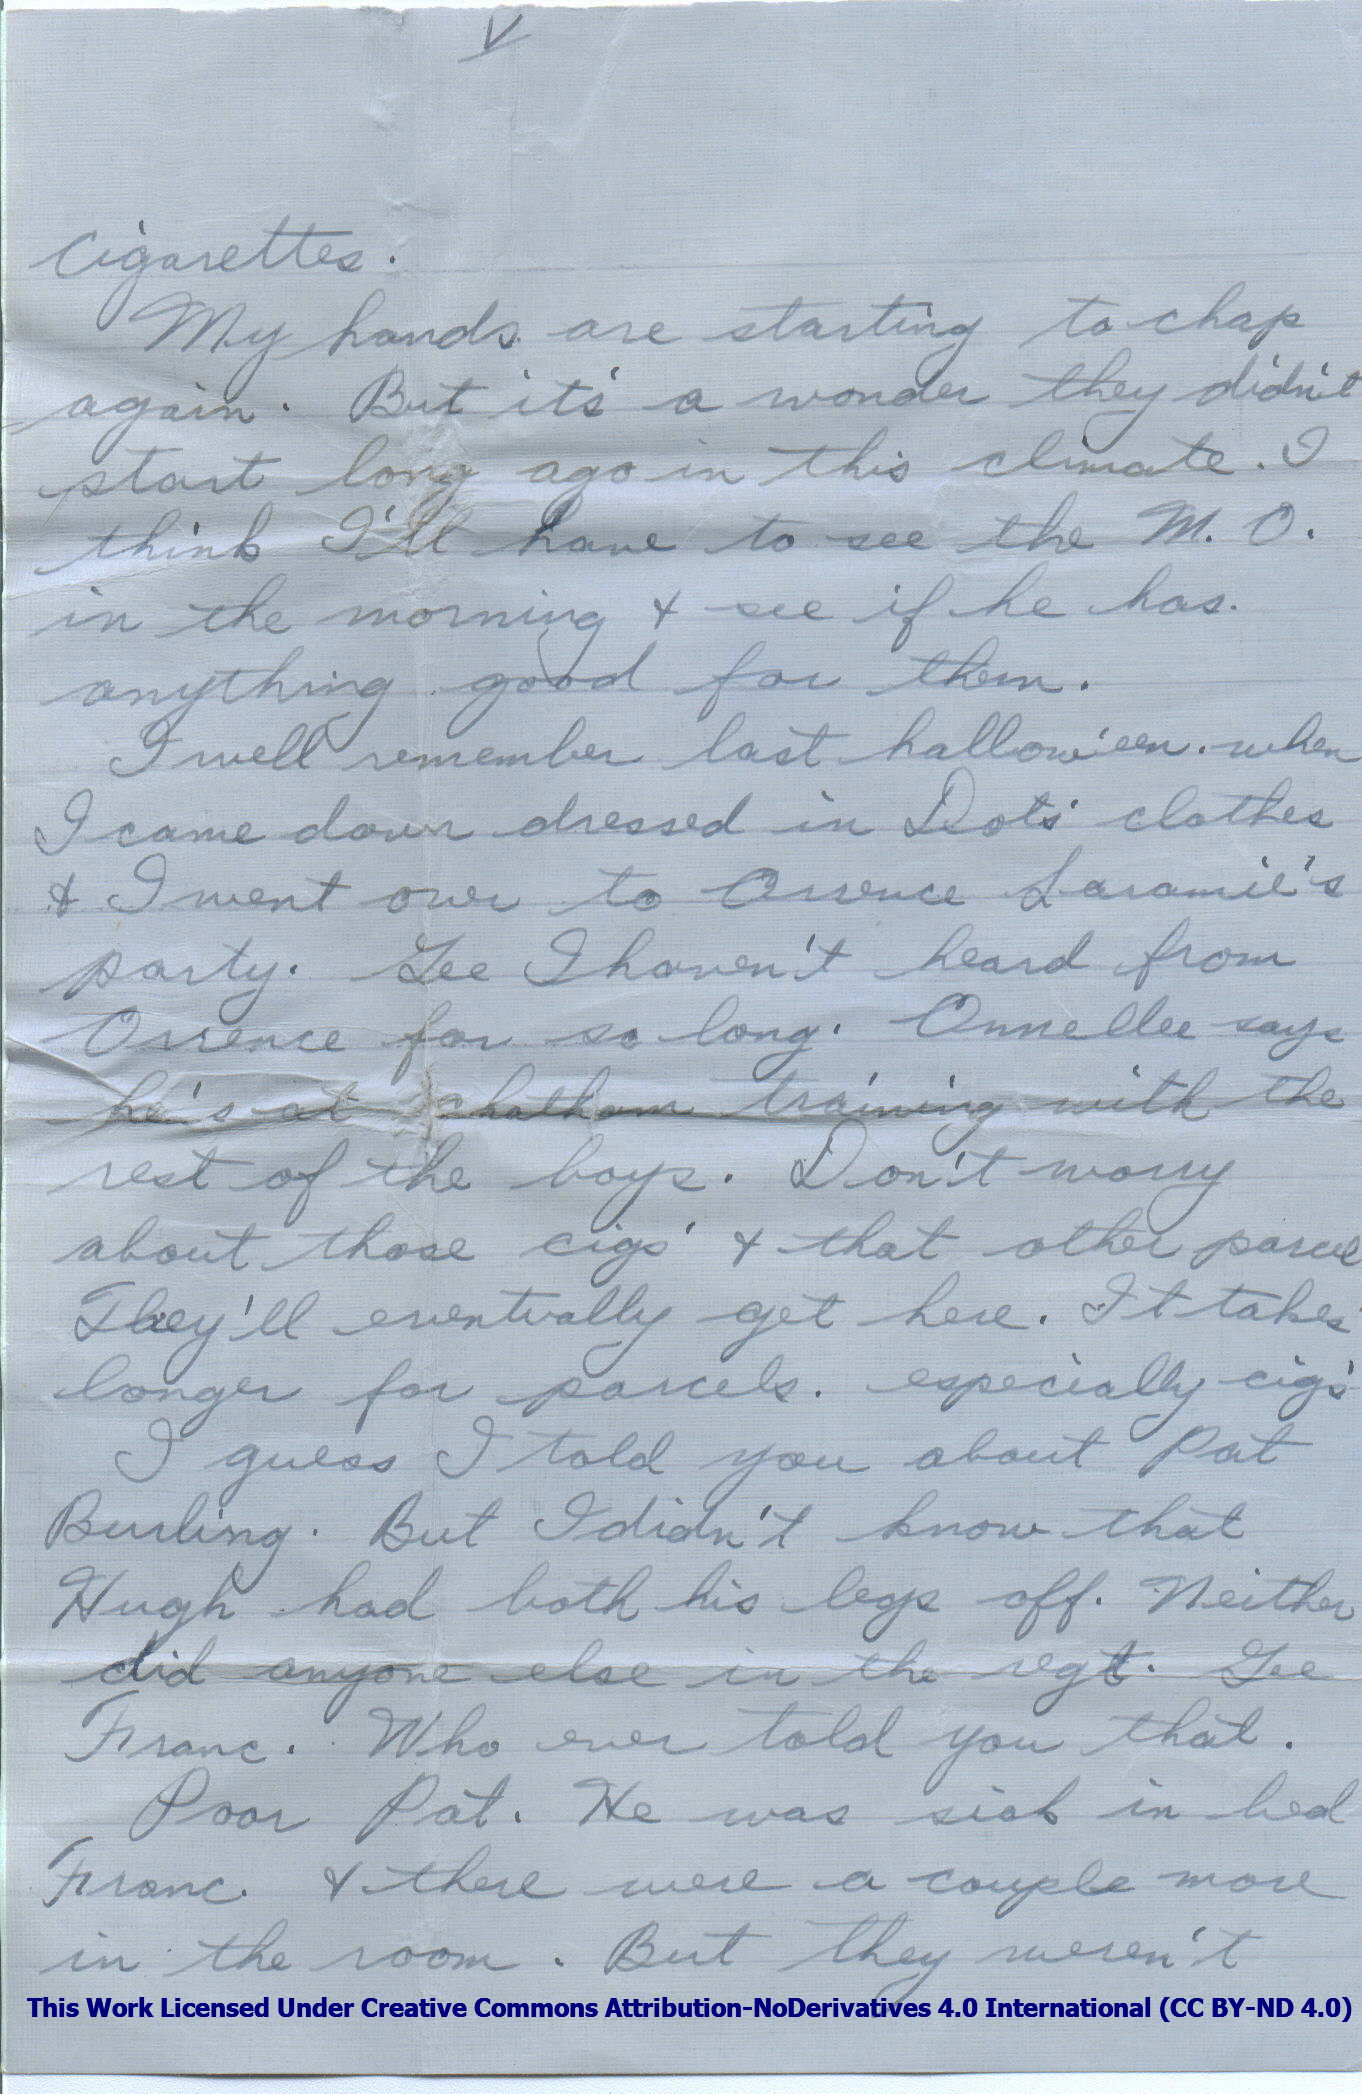 V
Cigarettes.
My hands are starting to chap
again. But it's a wonder they didn't
start long ago in this climate. I
think I'll have to see the M. O.
in the morning & see if he has.
anything good for them.
I well remember last hallow'een. when
I came down dressed in Dot's clothes
& I went over to Orrence Laramie's
party. Gee I haven't heard from
Orrence for so long. Onnellee says
he's at Chatham training with the
rest of the boys. Don't worry
about those cigs' & that other parcel
They'll eventually get here. It takes
longer for parcels. especially cig's
I guess I told you about Pat
Burling. But I didn't know that
Hugh had both his legs off. Neither
did anyone else in the regt. Gee
Franc. Who ever told you that.
Poor Pat. He was sick in bed
Franc. & there were a couple more
in the room. But they weren't
This Work Licensed Under Creative Commons Attribution-NoDerivatives 4.0 International (CC BY-ND 4.0)